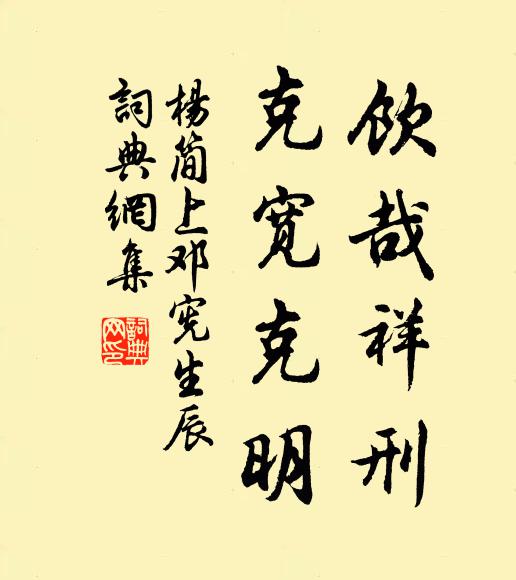 飲哉祥刑
克寬克明
楊简上邓宪生辰
詞典網集
詞典网印